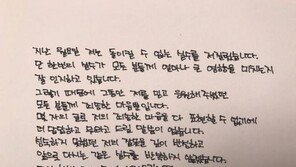 지난 월요일 저는 돌이킬 수 없는 실수를 저질렀습니다.
단 한번의 실수가 모든 분들께 얼마나 큰 영향을 미치는지
잘 인지하고 있습니다.
그렇기 때문에 그동안 저를 믿고 응원해주셨던
모든 분들께 죄송한 마음뿐입니다.
몇 자의 글로 저의 죄송한 마음을 다 표현할 수 없기에
더 답답하고 무겁고 드릴 말씀이 없습니다.
변수하지 못했던 저의 잘못을 깊이 반성하고
앞으로 다시는 같은 실수를 반복하지 않겠습니다.